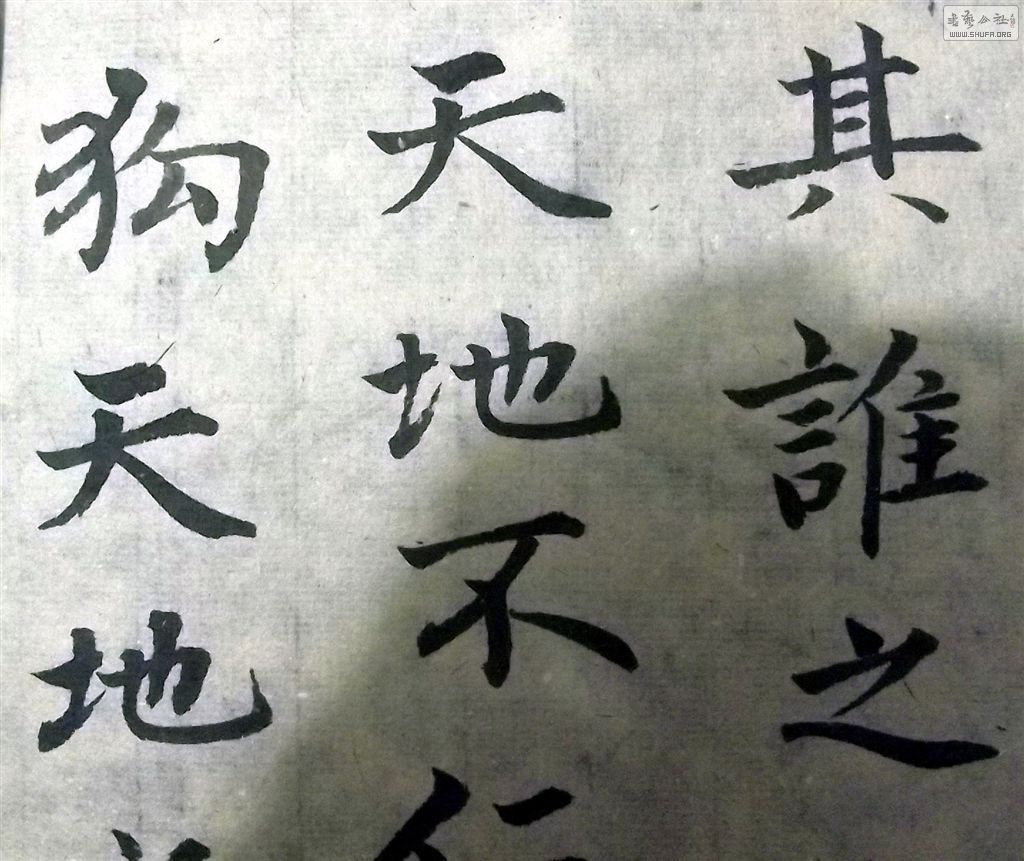 其誰之
天地不仁
狗天地
書藝公社
WWW.SHUFA.ORG